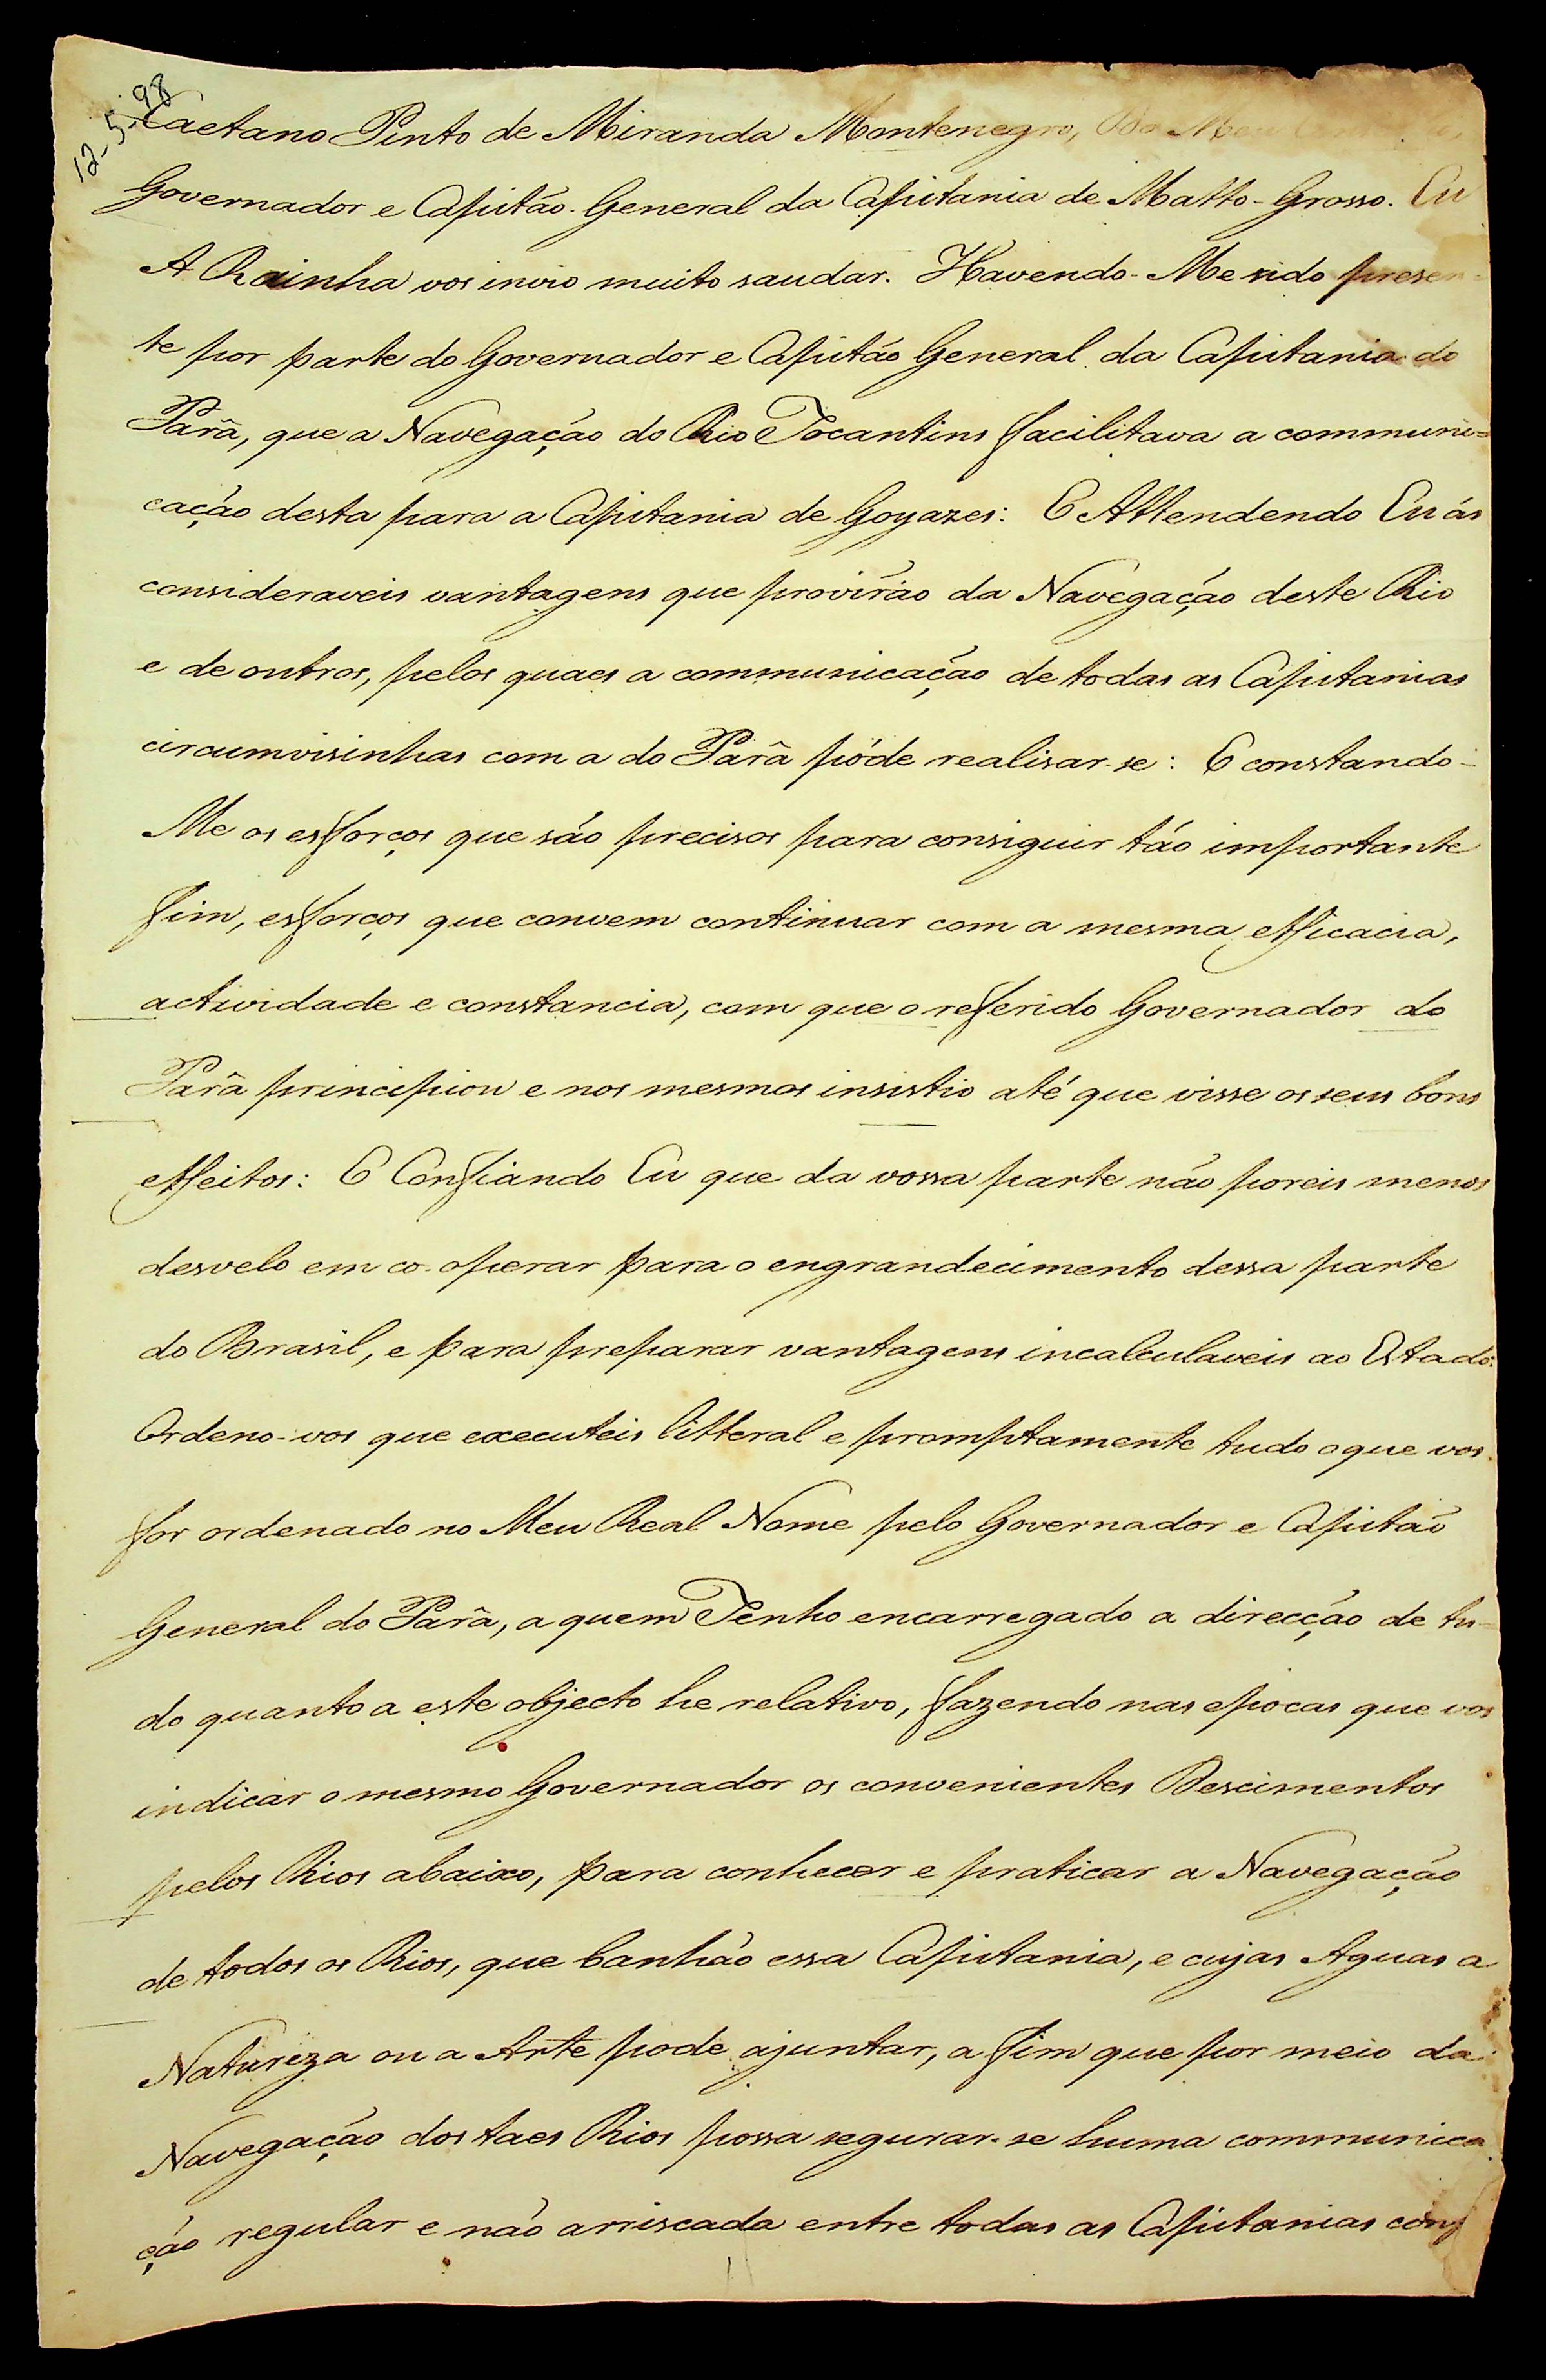 12-5-98
Caetano Pinto de Miranda Montenegro, Do Meu
Governador e Capitão-General da Capitania de Matto-Grosso. Eu
A Rainha vos invio muito saudar. Havendo-Me sido presen-
te por parte do Governador e Capitão General da Capitania do
Parâ, que a Navegação do Rio Tocantins facilitava a communi-
cação desta para a Capitania de Goyazes: E Attendendo Eu ás
consideraveis vantagens que provirão da Navegação deste Rio
e de outros, pelos quaes a communicação de todas as Capitanias
circumvisinhas com a do Parâ póde realisar-se: E constando-
Me os esforços que são precisos para consiguir tão importante
fim, esforços que convem continuar com a mesma efficacia,
actividade e constancia, com que o referido Governador do
Parâ principiou e nos mesmos insistio até que visse os seus bons
effeitos: E Confiando Eu que da vossa parte não poreis menos
desvelo em co-operar para o engrandecimento dessa parte
do Brasil, e para preparar vantagens incalculaveis ao Estado:
Ordeno-vos que executeis litteral e promptamente tudo o que vos
for ordenado no Meu Real Nome pelo Governador e Capitão
General do Parâ, a quem Tenho encarregado a direcção de tu-
do quanto a este objecto he relativo, fazendo nas epocas que vos
indicar o mesmo Governador os convenientes Descimentos
pelos Rios abaixo, para conhecer e praticar a Navegação
de todos os Rios, que banhão essa Capitania, e cujas Aguas a
Natureza ou a Arte pode ajuntar, a fim que por meio da
Navegação dos taes Rios possa segurar-se huma communica
ção regular e não arriscada entre todas as Capitanias conf